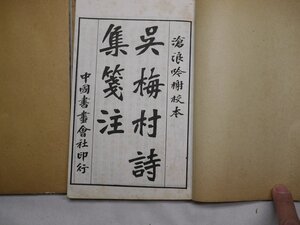 滄浪吟榭校本
吳梅村詩
集箋注
中國書畫會社印行